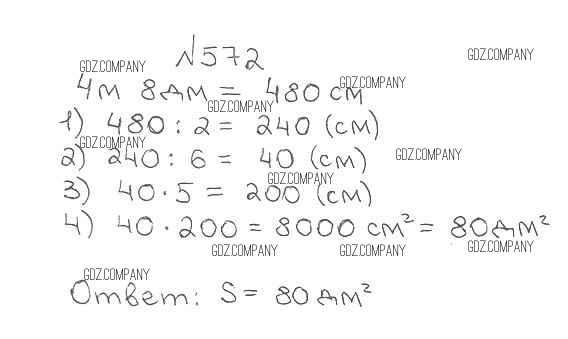 №572
GDZ.COMPANY GDZ.COMPANY
4м 8дм = 480 см
GDZ.COMPANY
GDZ.COMPANY
1) 480 : 2 = 240 (см)
GDZ.COMPANY
2) 240 : 6 = 40 (см)
GDZ.COMPANY
GDZ.COMPANY
3) 40 · 5 = 200 (см)
4) 40 · 200 = 8000 см² = 80дм²
GDZ.COMPANY GDZ.COMPANY GDZ.COMPANY
GDZ.COMPANY
Ответ: S = 80 дм²